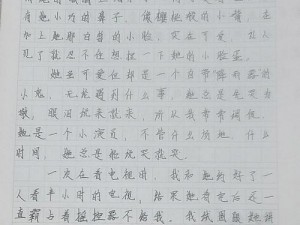 着她小巧的鼻子，像樱桃般的小嘴，再
加上她那白白的小脸，实在可爱，让人
见了就忍不住想捏一下她的小脸蛋。
她虽可爱但却是一个自带降雨器的
小鬼，无论遇到什么事，她总是先哭为
敬，眼泪说来就来，所以我常常调侃，
她是一个小演员，不管什么场地，什么
时间，她总是能说哭就哭。
一次在看电视时，我和她约好了一
人看半小时的电视，结果她看完后还一
直霸占着摇控器不给我。我试图跟她讲